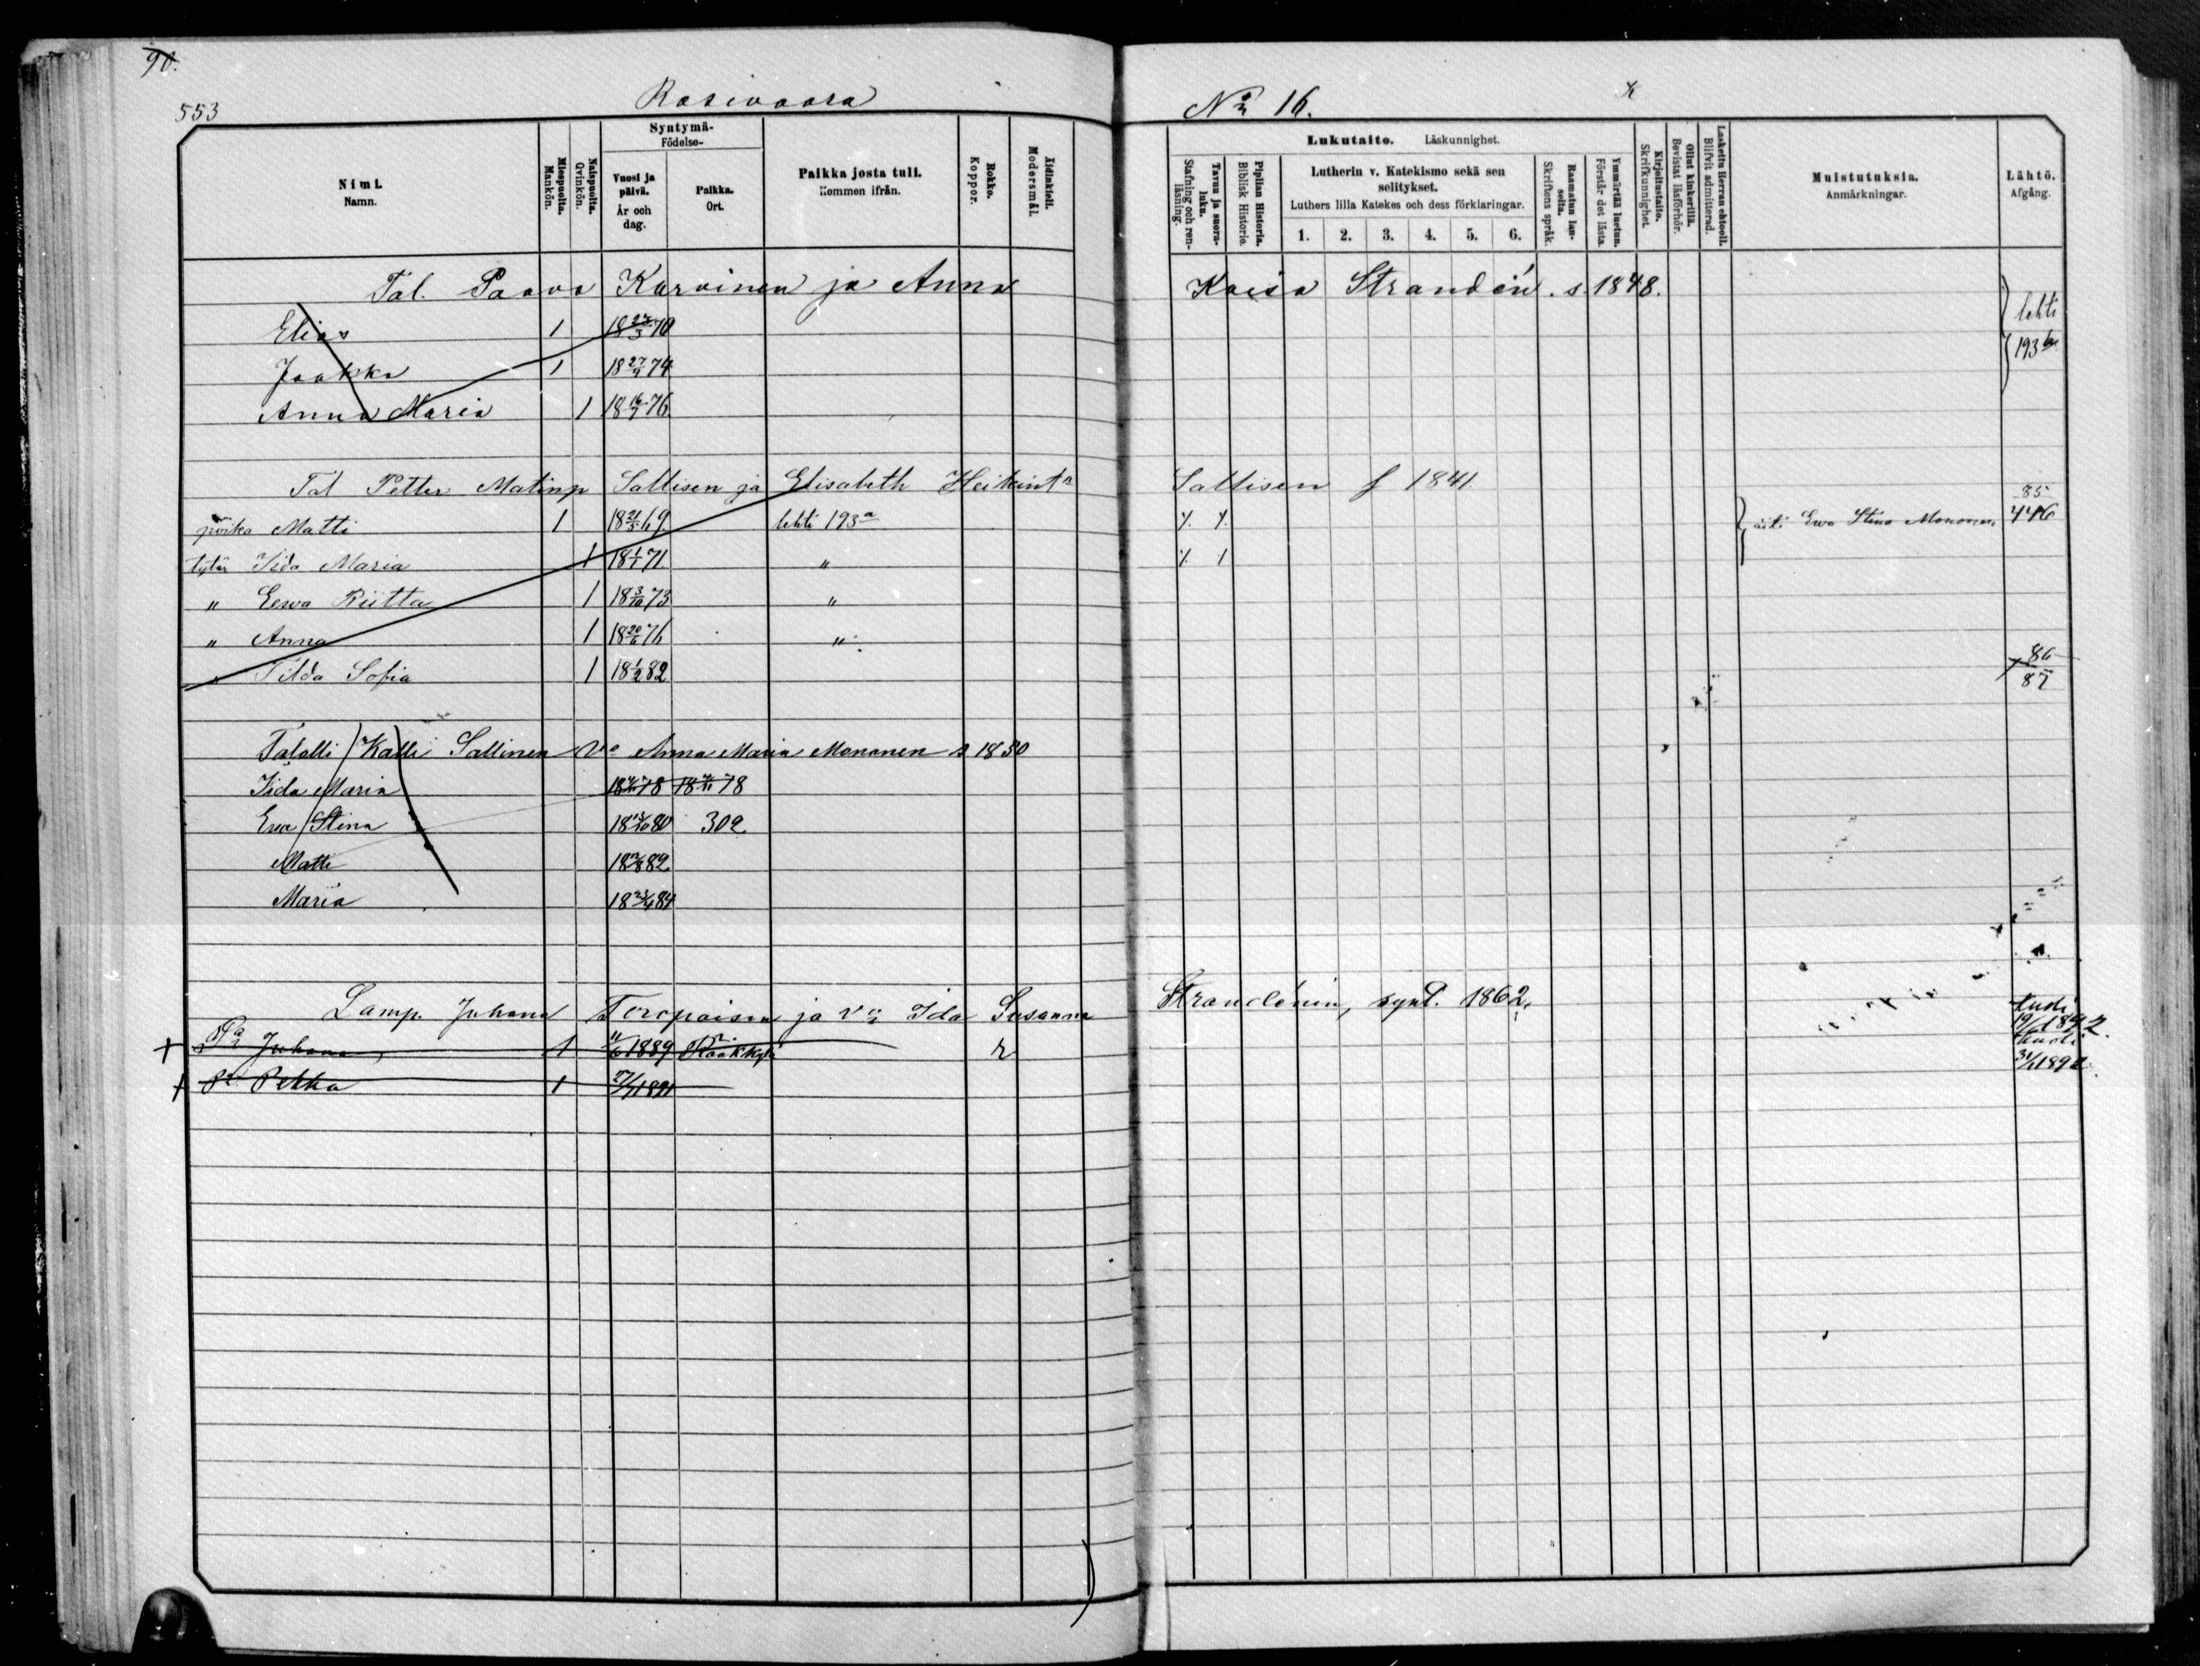 90.
553
Rasivaara
No 16.
K
Nimi. Namn.
Miespuolta. Mankön.
Naispuolta. Qvinkön.
Syntymä- Födelse-
Vuosi ja päivä. År och dag.
Paikka. Ort.
Paikka josta tuli. Kommen ifrån.
Rokko. Koppor.
Äidinkieli. Modersmål.
Lukutaito. Läskunnighet.
Tavuu ja suoraluku. Stafning och renläsning.
Piplian Historia. Biblisk Historie.
Lutherin v. Katekismo sekä sen selitykset.
Luthers lilla Katekes och dess förklaringar.
1. 2. 3. 4. 5. 6.
Raamatun lauseita. Skriftens språk.
Ymmärtää luetun. Förstår det lästa.
Kirjoitustaito. Skrifkunnighet.
Ollut kinkerillä. Bevistat läsförhör.
Laskettu Herran ehtool. Blifvit admitterad.
Muistutuksia. Anmärkningar.
Lähtö. Afgång.
Tal. Paavo Karvinen ja Anna Kaisa Strandén. s. 1848.
Elias 1 18 23/3 70 lehti
Jaakko 1 18 27/9 74 193 b
Anna Maria 1 18 16/7 76
Tal Petter Matinp Sallisen ja Elisabeth Heikint a Sallisen f 1841.
poika Matti 1 18 21/5 69 lehti 193 a äiti Ewa Stina Mononen 85 446
tytär Iida Maria 1 18 1/1 71 "
" Eewa Riitta 1 18 3/10 73 "
" Anna 1 18 20/6 76 "
" Tilda Sofia 1 18 1/2 82 86 87
Talolli Kalli Sallinen Vo Anna Maria Mononen s 1850
Iida Maria 78 78
Ewa Stina 18 13/10 80 302
Matti 82
Maria 18 23/4 84
Lamp. Juhana Toropaisen ja Vo Ida Susanna Strandénin, synt. 1862.
+ Pa Juhana 1 11/6 1889 Rääkkylä r kuoli 19/1 1892.
+ Pa Pekka 1 27/7 1891 kuoli 31/1 1892